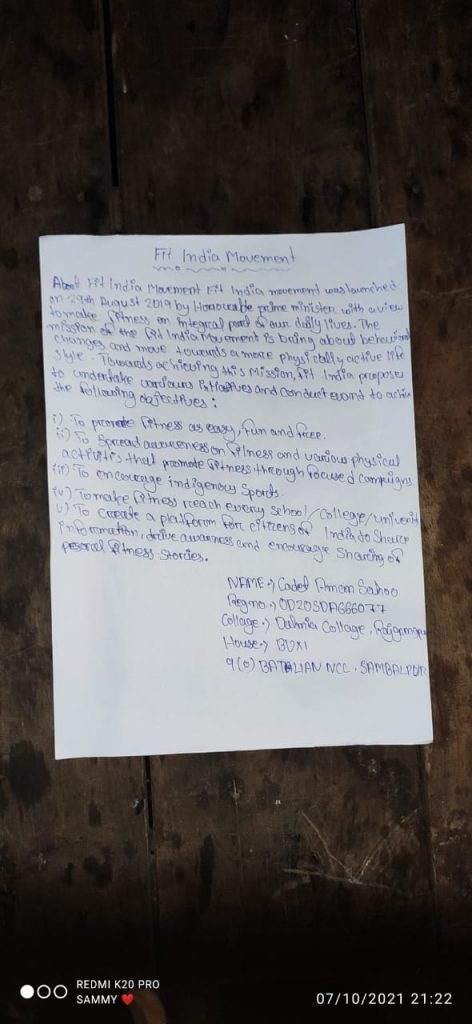 Fit India Movement
About Fit India Movement Fit India movement was launched
on 29th August 2019 by Honourable prime minister with a view
to make fitness an integral part of our daily lives. The
mission of the Fit India Movement is bring about behavioral
changes and move towards a more physically active life
style. Towards achieving this mission, Fit India proposes
to undertake various initiatives and conduct event to achieve
the following objectives:
i) To promote fitness as easy, fun and free.
ii) To spread awareness on fitness and various physical
activitis that promote fitness through focused campaigns
iii) To encourage indigenous sports.
iv) To make fitness reach every school/college/univerit
v) To create a platform for citizens of India to share
information, drive awarness and encourage sharing of
pesoral fitness stories.
NAME:-) Cadet Aman Sahoo
Regno:-) OD20SDA666077
Collage:-) Dalmia Collage,
House:-)
9(O) BATALIAN NCC, SAMBALPUR
REDMI K20 PRO
SAMMY ❤
07/10/2021 21:22